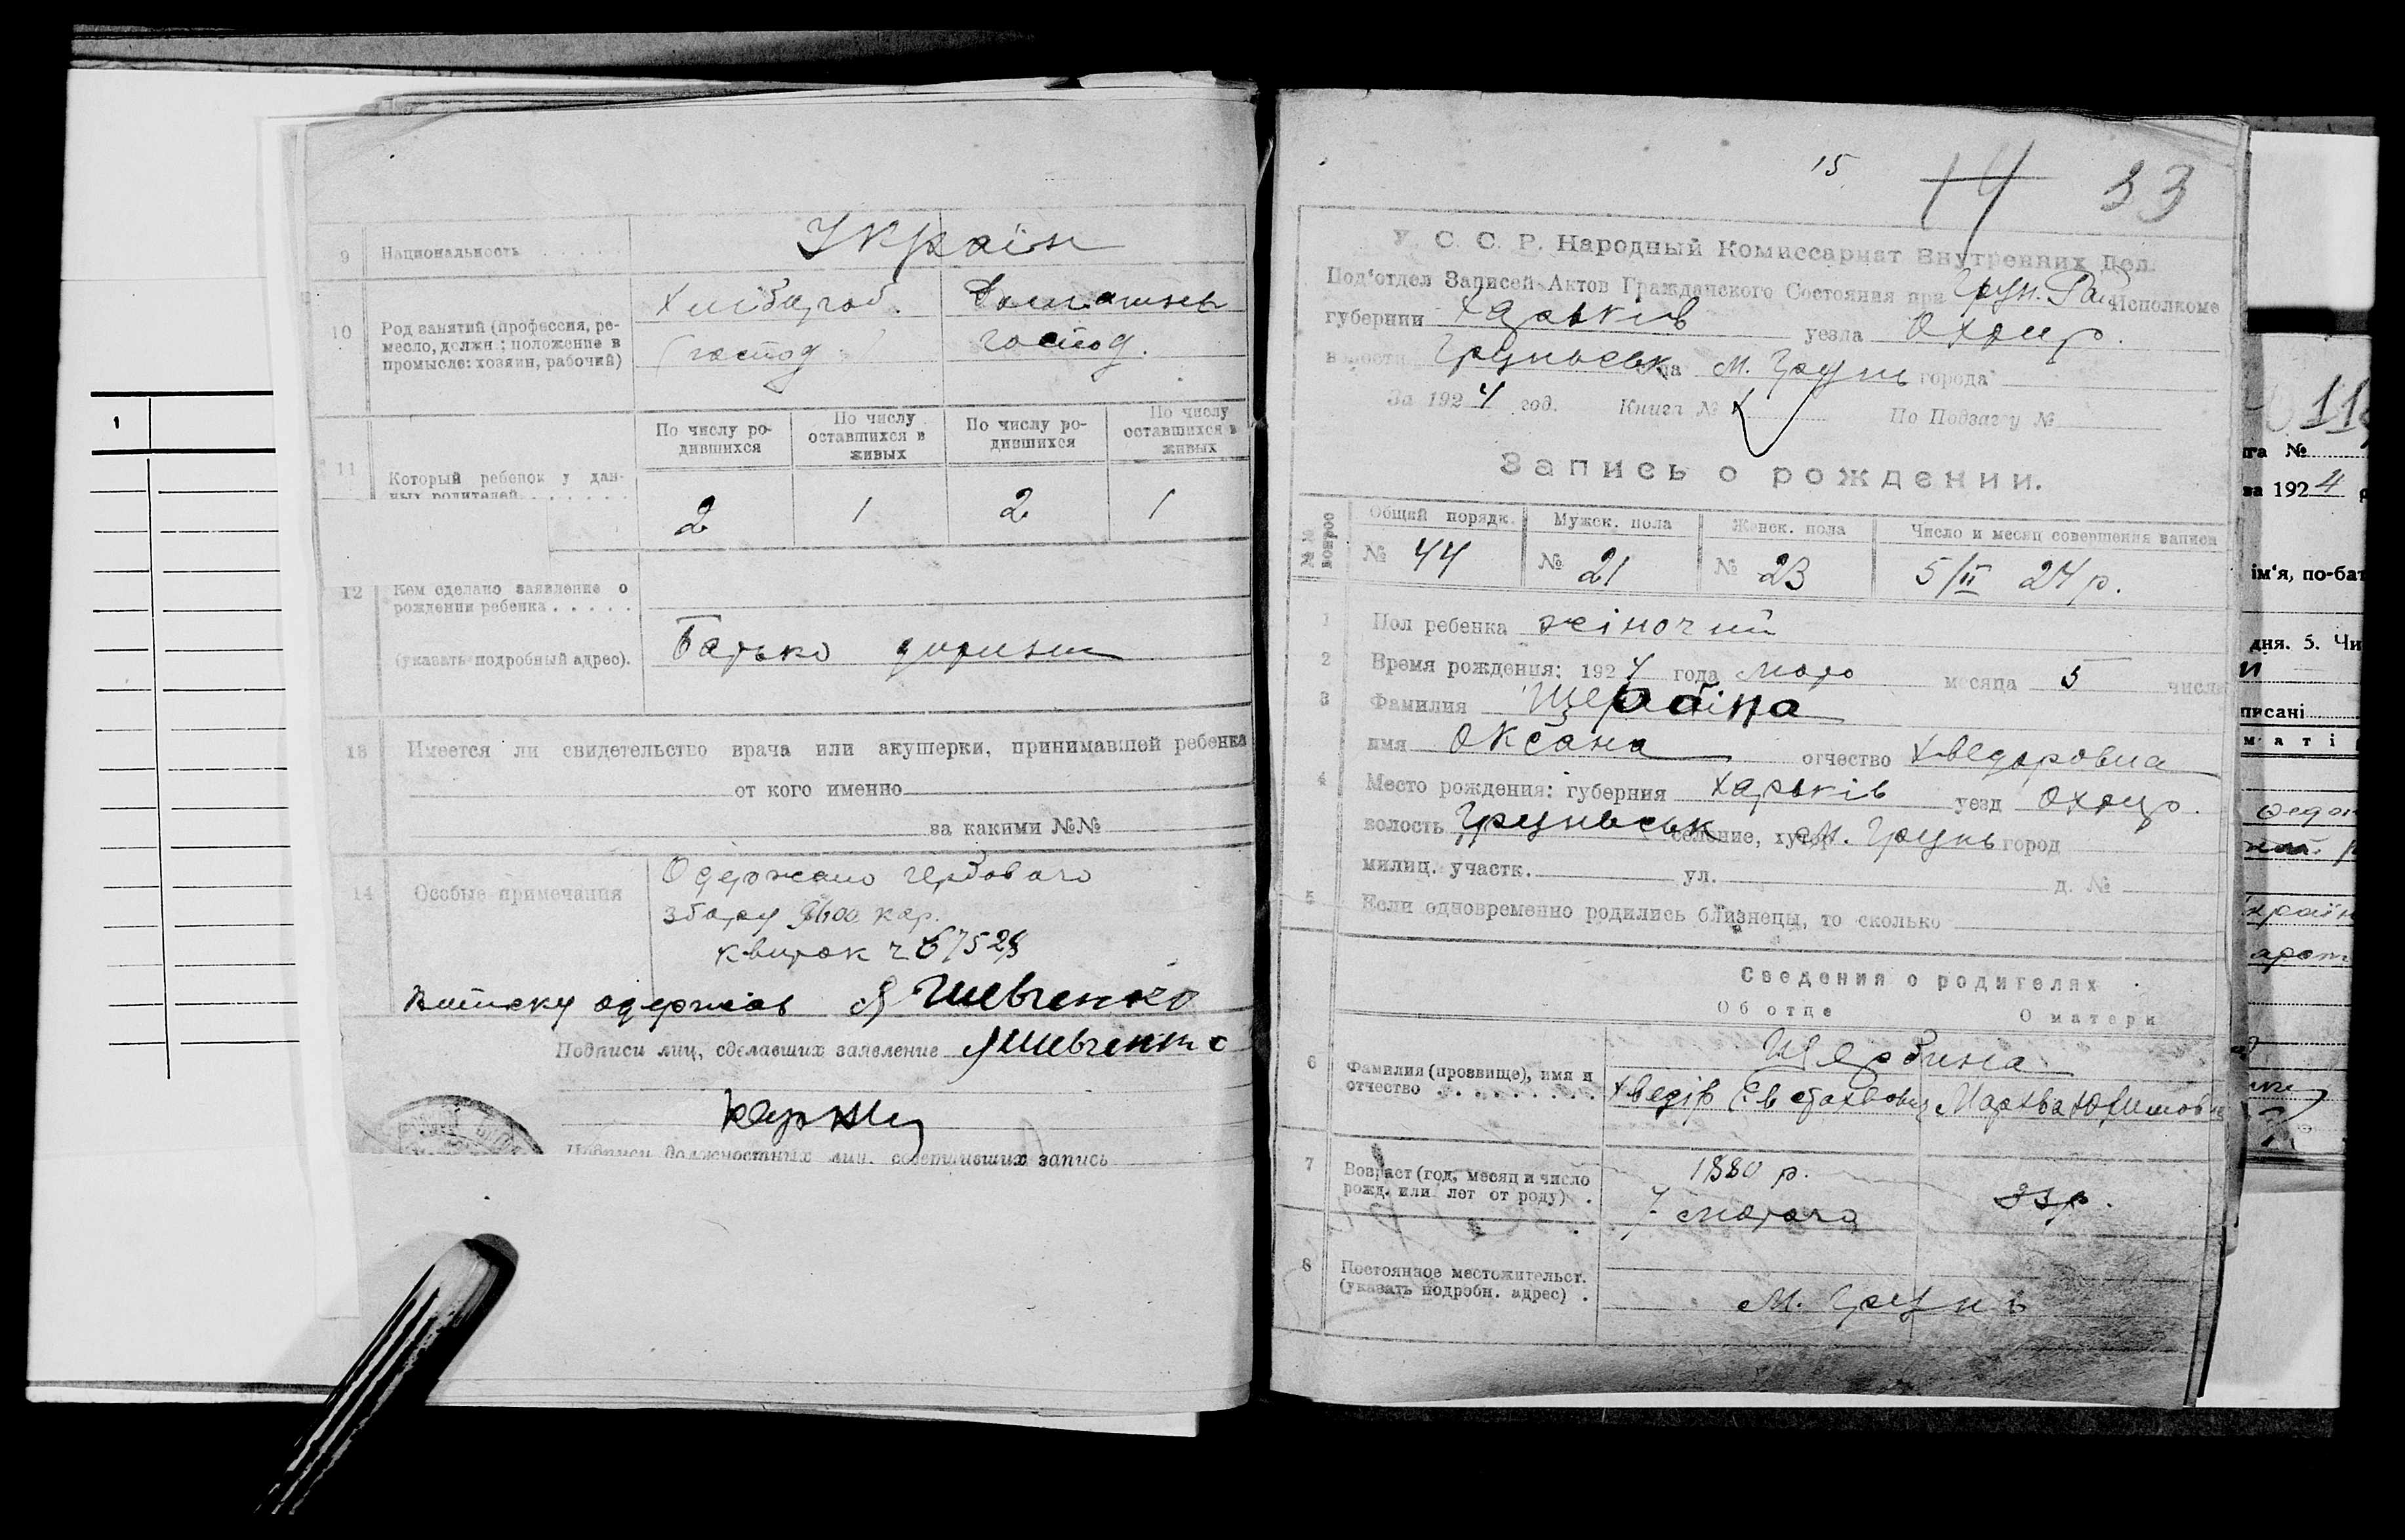 9 Национальность Україн
10 Род занятий (профессия, ре-
месло, должн.; положение в
промысле: хозяин, рабочий)
господ. господ.
11 Который ребенок у дан-
ных родителей
По числу ро-
дившихся
По числу
оставшихся в
живых
По числу ро-
дившихся
По числу
оставшихся в
живых
2 1 2 1
12 Кем сделано заявление о
рождении ребенка
(указать подробный адрес). Батько
13 Имеется ли свидетельство врача или акушерки, принимавшей ребенка
от кого именно
за какими №№
14 Особые примечания
Одержано гербового
збору 3600 кар.
квиток
одержав Шевченко
Подписи лиц, сделавших заявление Шевченко
Подписи должностных лиц, совершивших запись
15 14 33
У. С. С. Р. Народный Комиссариат Внутренних Дел.
Под'отдел Записей Актов Гражданского Состояния при Грун. Рай Исполкоме
губернии Харьків уезда Охтир.
волости Груньськ села м. Грунь города
За 1924 год. Книга № По Подзагу №
Запись о рождении.
№№ вопрос
Общий порядк. Мужск. пола Женск. пола Число и месяц совершения записи
№ 44 № 21 № 23 5/II 24 р.
1 Пол ребенка жіночий
2 Время рождения: 1924 года люто месяца 5 числа
3 Фамилия Щербіна
имя Оксана отчество Хведоровна
4 Место рождения: губерния Харьків уезд Охтир.
волость Груньськ селение, хутор м. Грунь город
милиц. участк. ул. д. №
5 Если одновременно родились близнецы, то сколько
Сведения о родителях
Об отце О матери
6 Фамилия (прозвище), имя и
отчество
Щербина
Хведір Євстахвович Мархва Юхимовна
7 Возраст (год, месяц и число
рожд. или лет от роду)
1880 р.
7 лютого
33 р.
8 Постоянное местожительст.
(указать подробн. адрес)
М. Грунь
1
119
га №
за 1924 р
ім'я, по-бат
дня. 5. Чи
писані
маті